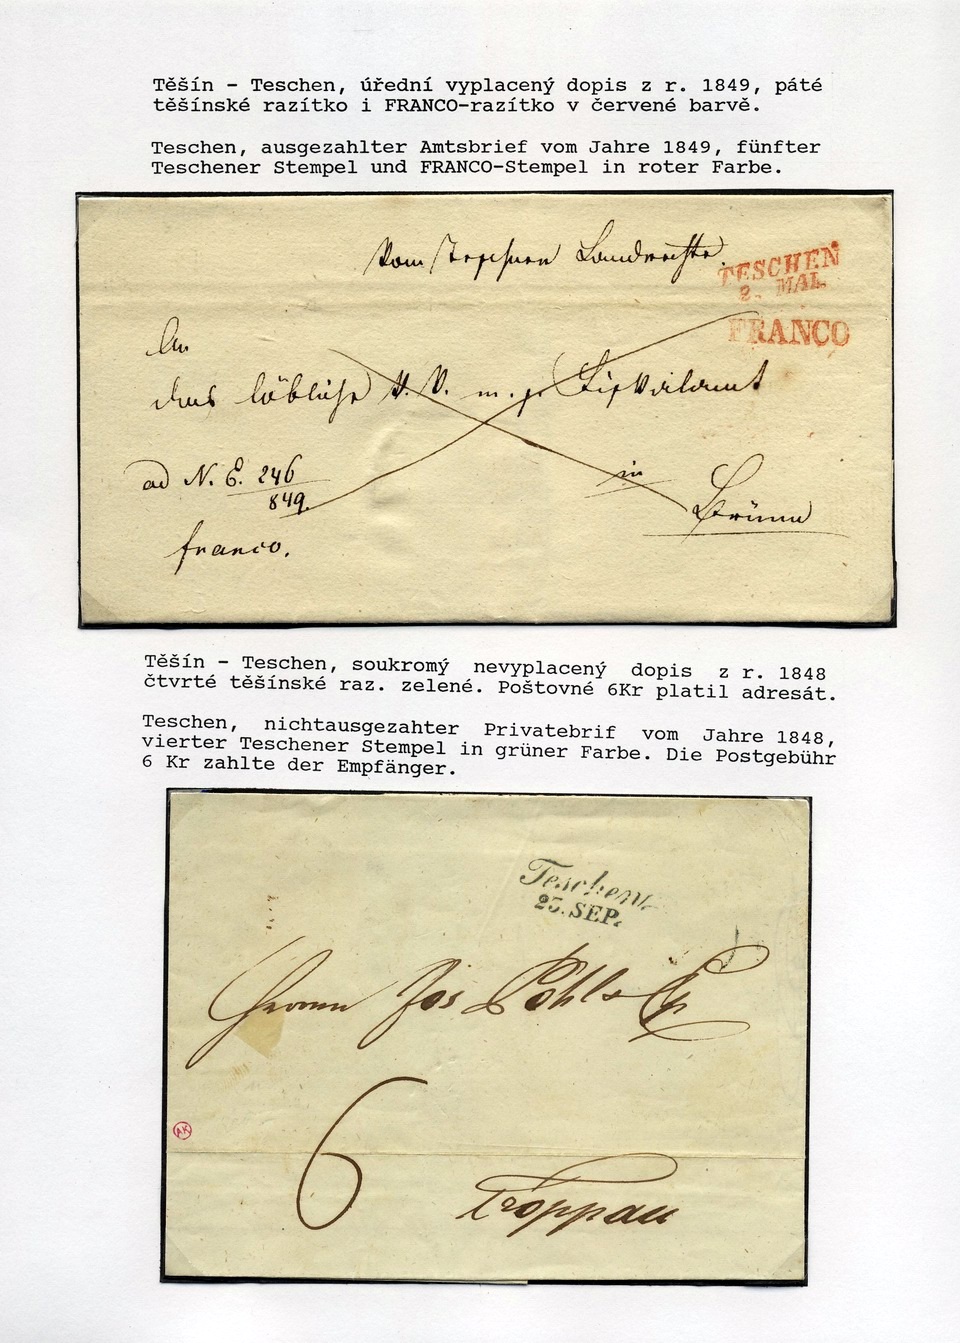 Těšín – Teschen, úřední vyplacený dopis z r. 1849, páté
těšínské razítko i FRANCO-razítko v červené barvě.
Teschen, ausgezahlter Amtsbrief vom Jahre 1849, fünfter
Teschener Stempel und FRANCO-Stempel in roter Farbe.
Vom Teschner Landrechte.
TESCHEN
2. MAI.
FRANCO
An
das löbliche k. k. m. s. Fiskalamt
ad N. E. 246
849
in
Brünn
franco.
Těšín – Teschen, soukromý nevyplacený dopis z r. 1848
čtvrté těšínské raz. zelené. Poštovné 6Kr platil adresát.
Teschen, nichtausgezahter Privatebrif vom Jahre 1848,
vierter Teschener Stempel in grüner Farbe. Die Postgebühr
6 Kr zahlte der Empfänger.
Teschen
25. SEP.
Herrn Jos Pohl &
6
AK
Troppau